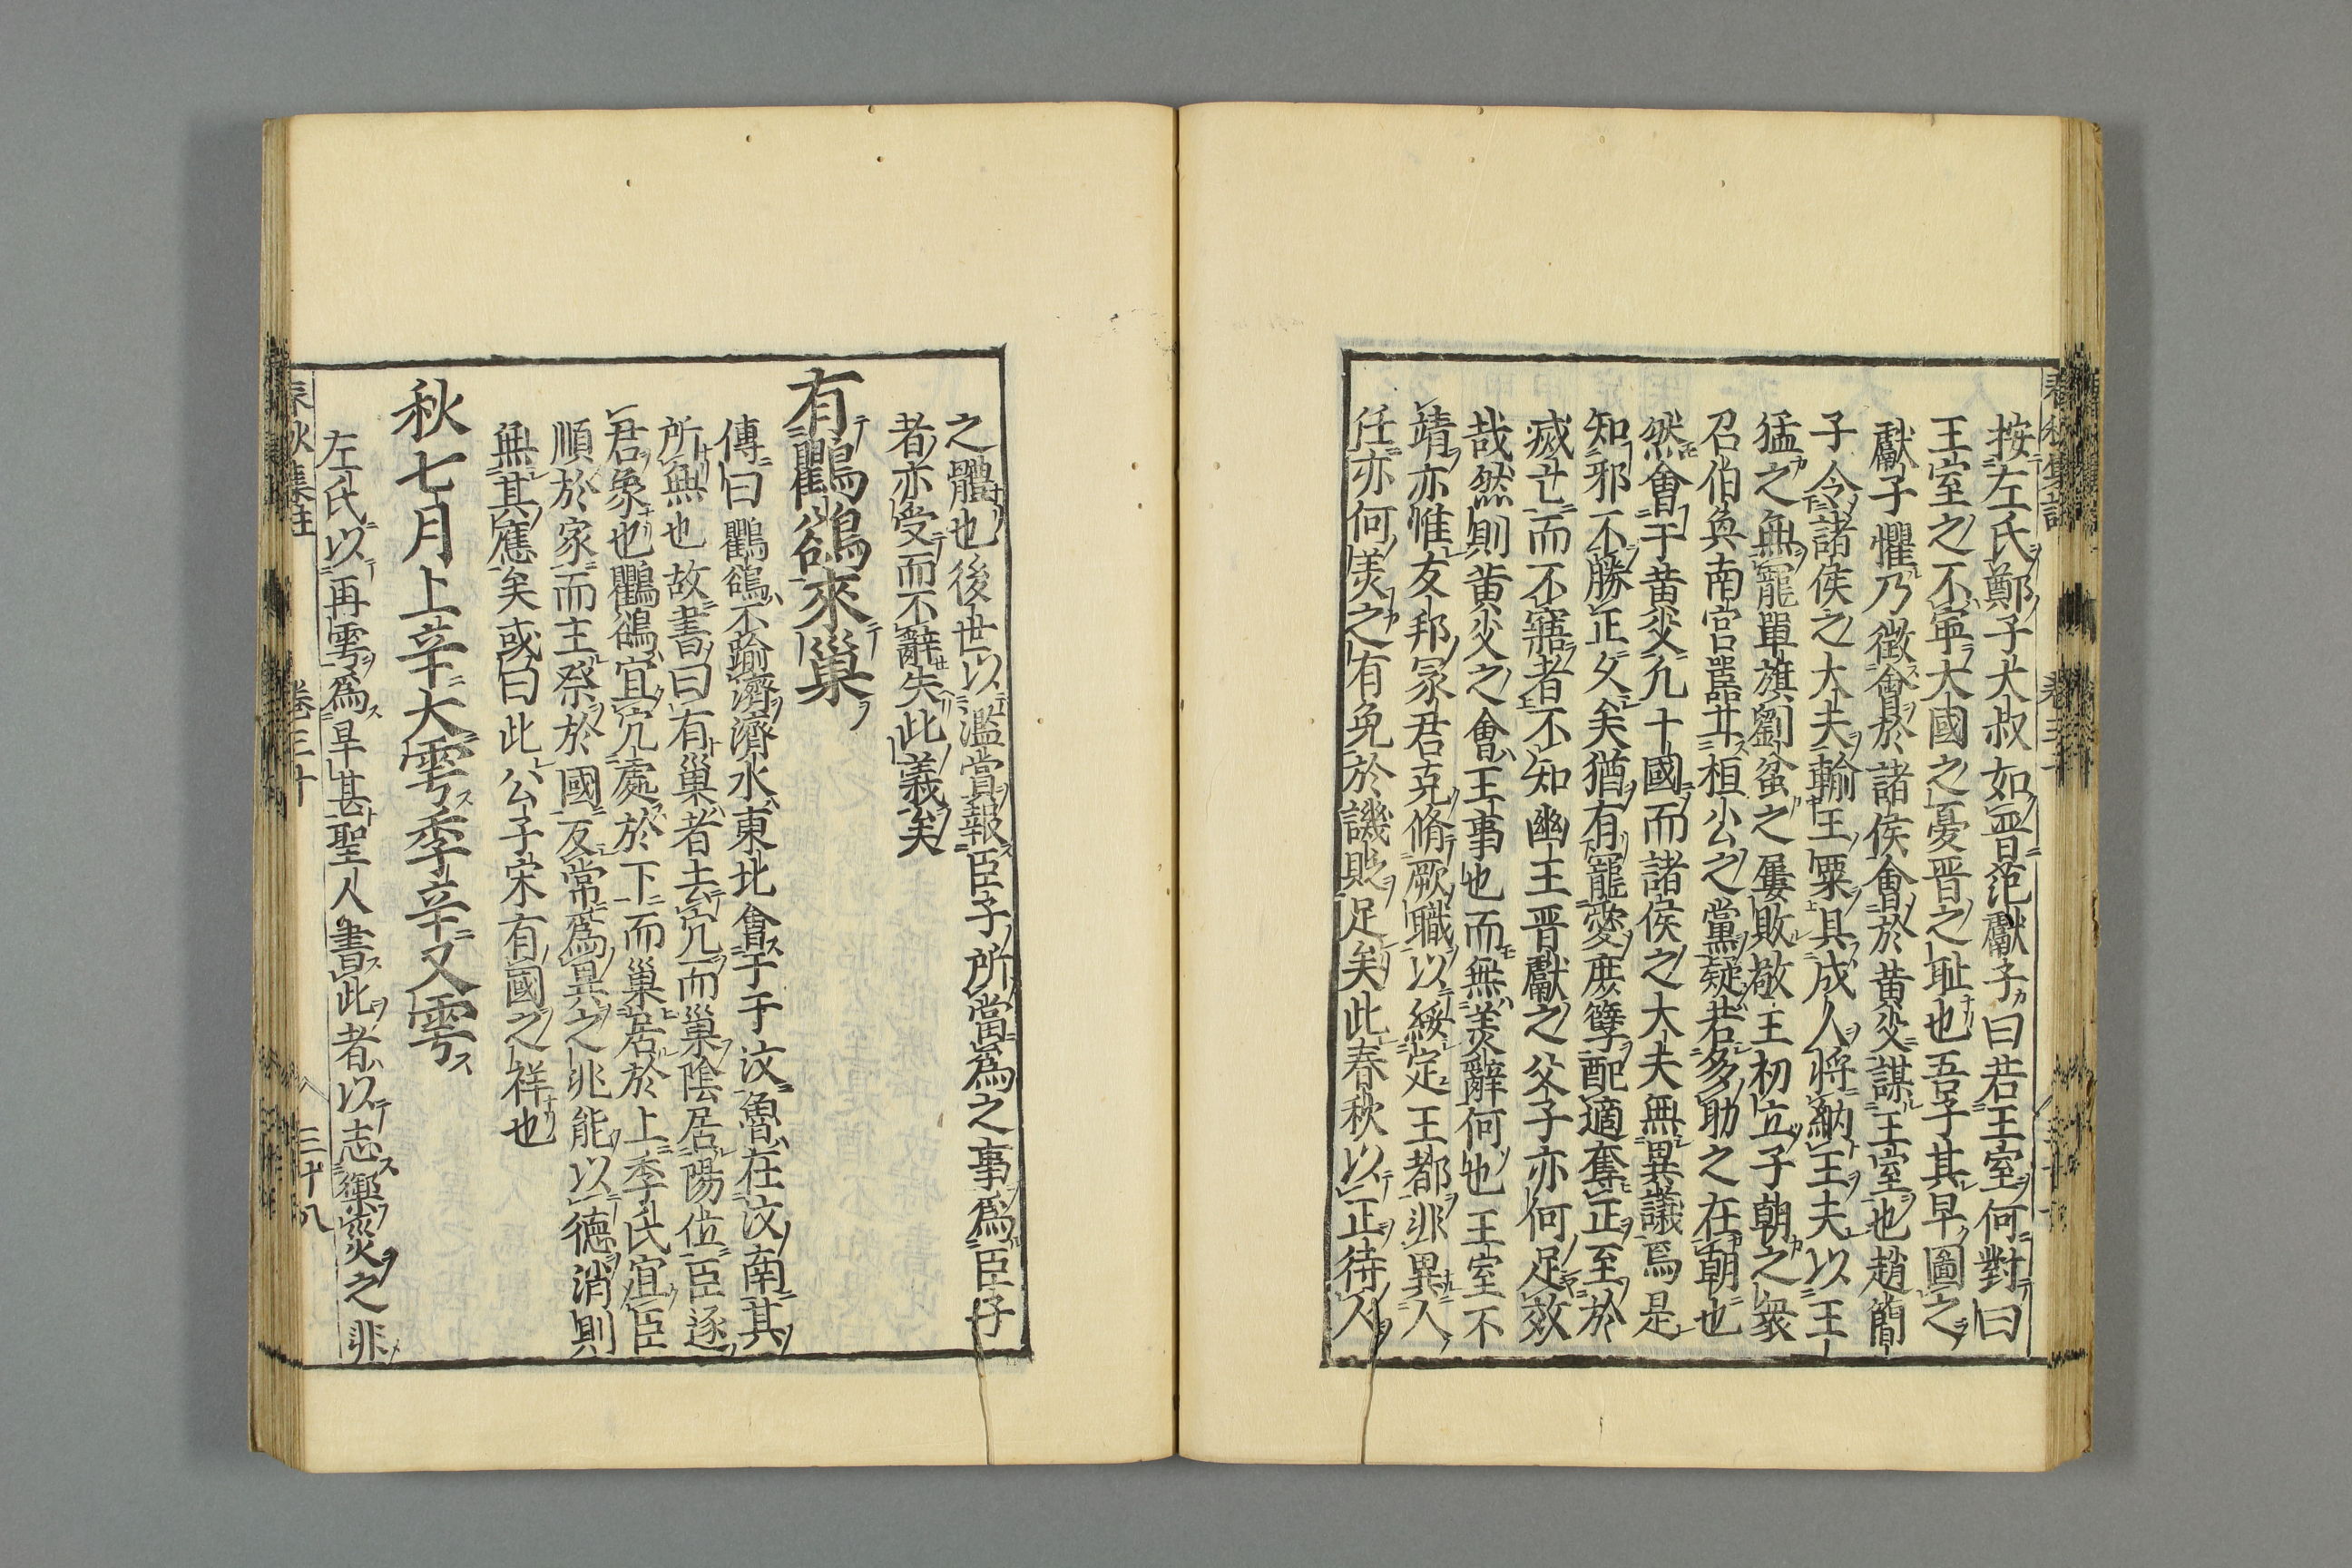 按左氏鄭子大叔如晉范獻子曰若王室何對曰
王室之不寧大國之憂晉之恥也吾子其早圖之
獻子懼乃徵會於諸侯會於黄父謀王室也趙簡
子令諸侯之大夫輸王粟具戍人將納王夫以王
猛之無寵單旗劉蚠之屢敗敬王初立子朝之衆
召伯奐南宫嚚甘桓公之黨疑若多助之在朝也
然會于黄父凡十國而諸侯之大夫無異議焉是
知邪不勝正久矣猶有寵愛庶孽配適奪正至於
滅亡而不寤者不知幽王晋獻之父子亦何足效
哉然則黄父之會王事也而無美辭何也王室不
靖亦惟友邦冢君克脩厥職以綏定王都非異人
任亦何美之有免於譏貶足矣此春秋以正待人
之體也後世以濫賞報臣子所當爲之事爲臣子
者亦受而不辭失此義矣
有鸜鵒來巢
傳曰鸜鵒不踰濟濟水東北會于于汶魯在汶南其
所無也故書曰有巢者去穴而巢陰居陽位臣逐
君象也鸜鵒宜穴處於下而巢居於上季氏宜臣
順於家而主祭於國反常爲異之兆能以德消則
無其應矣或曰此公子宋有國之祥也
秋七月上辛大雩季辛又雩
左氏以再雩爲旱甚聖人書此者以志禦灾之非
春秋集註 卷三十 三十八